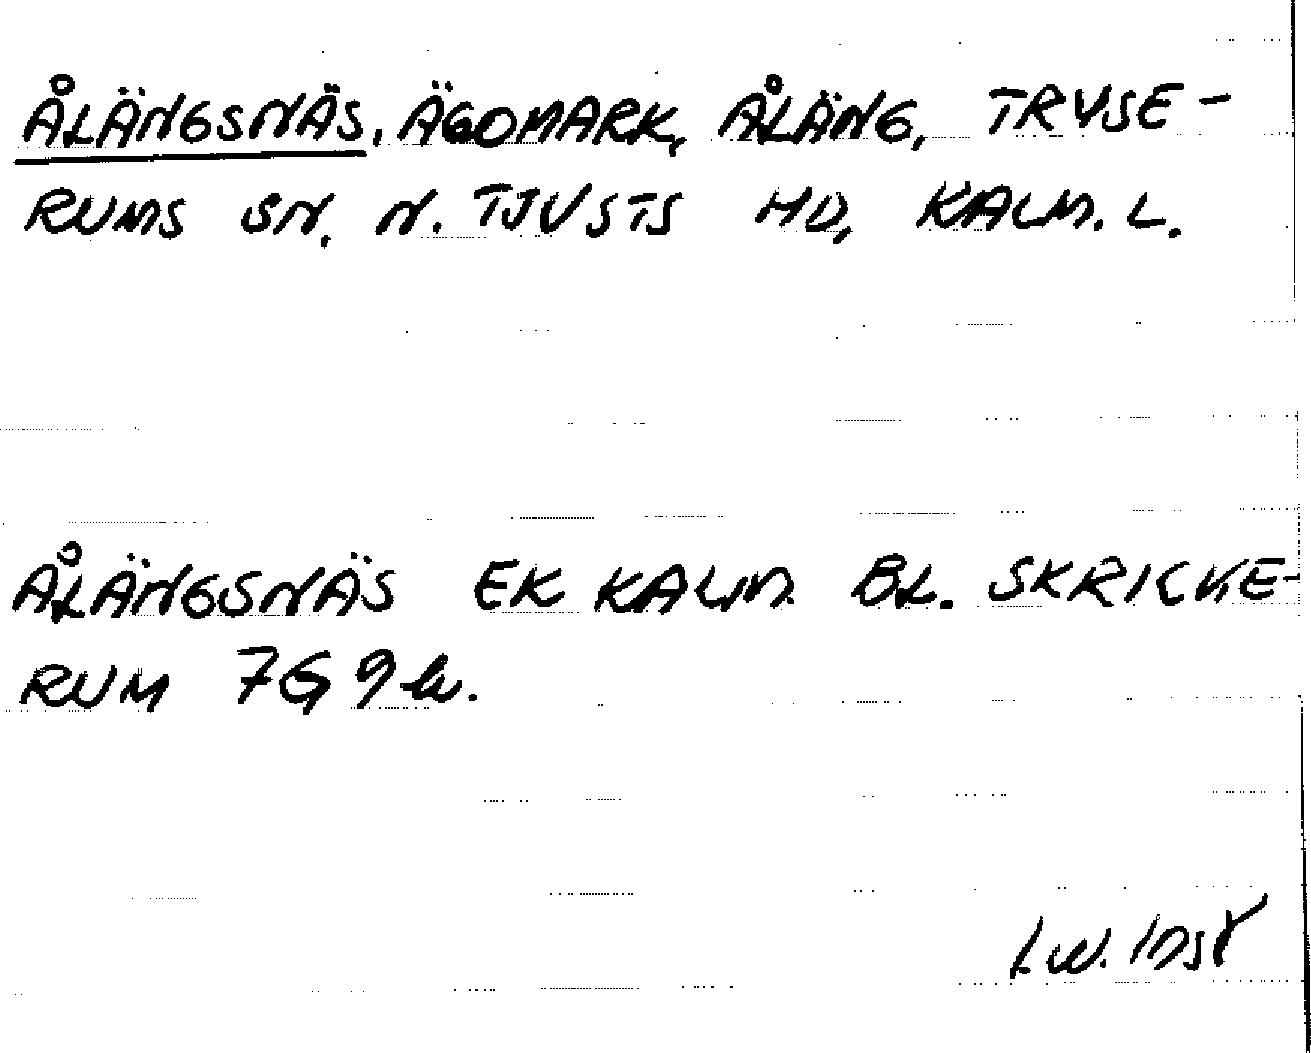 ÅLÄNGSNÄS, ÄGOMARK, ÅLÄNG, TRYSE-
RUMS SN. N. TJUSTS HD, KALM. L.
ÅLÄNGSNÄS EK KALM. BL. SKRICKE-
RUM 7G 9